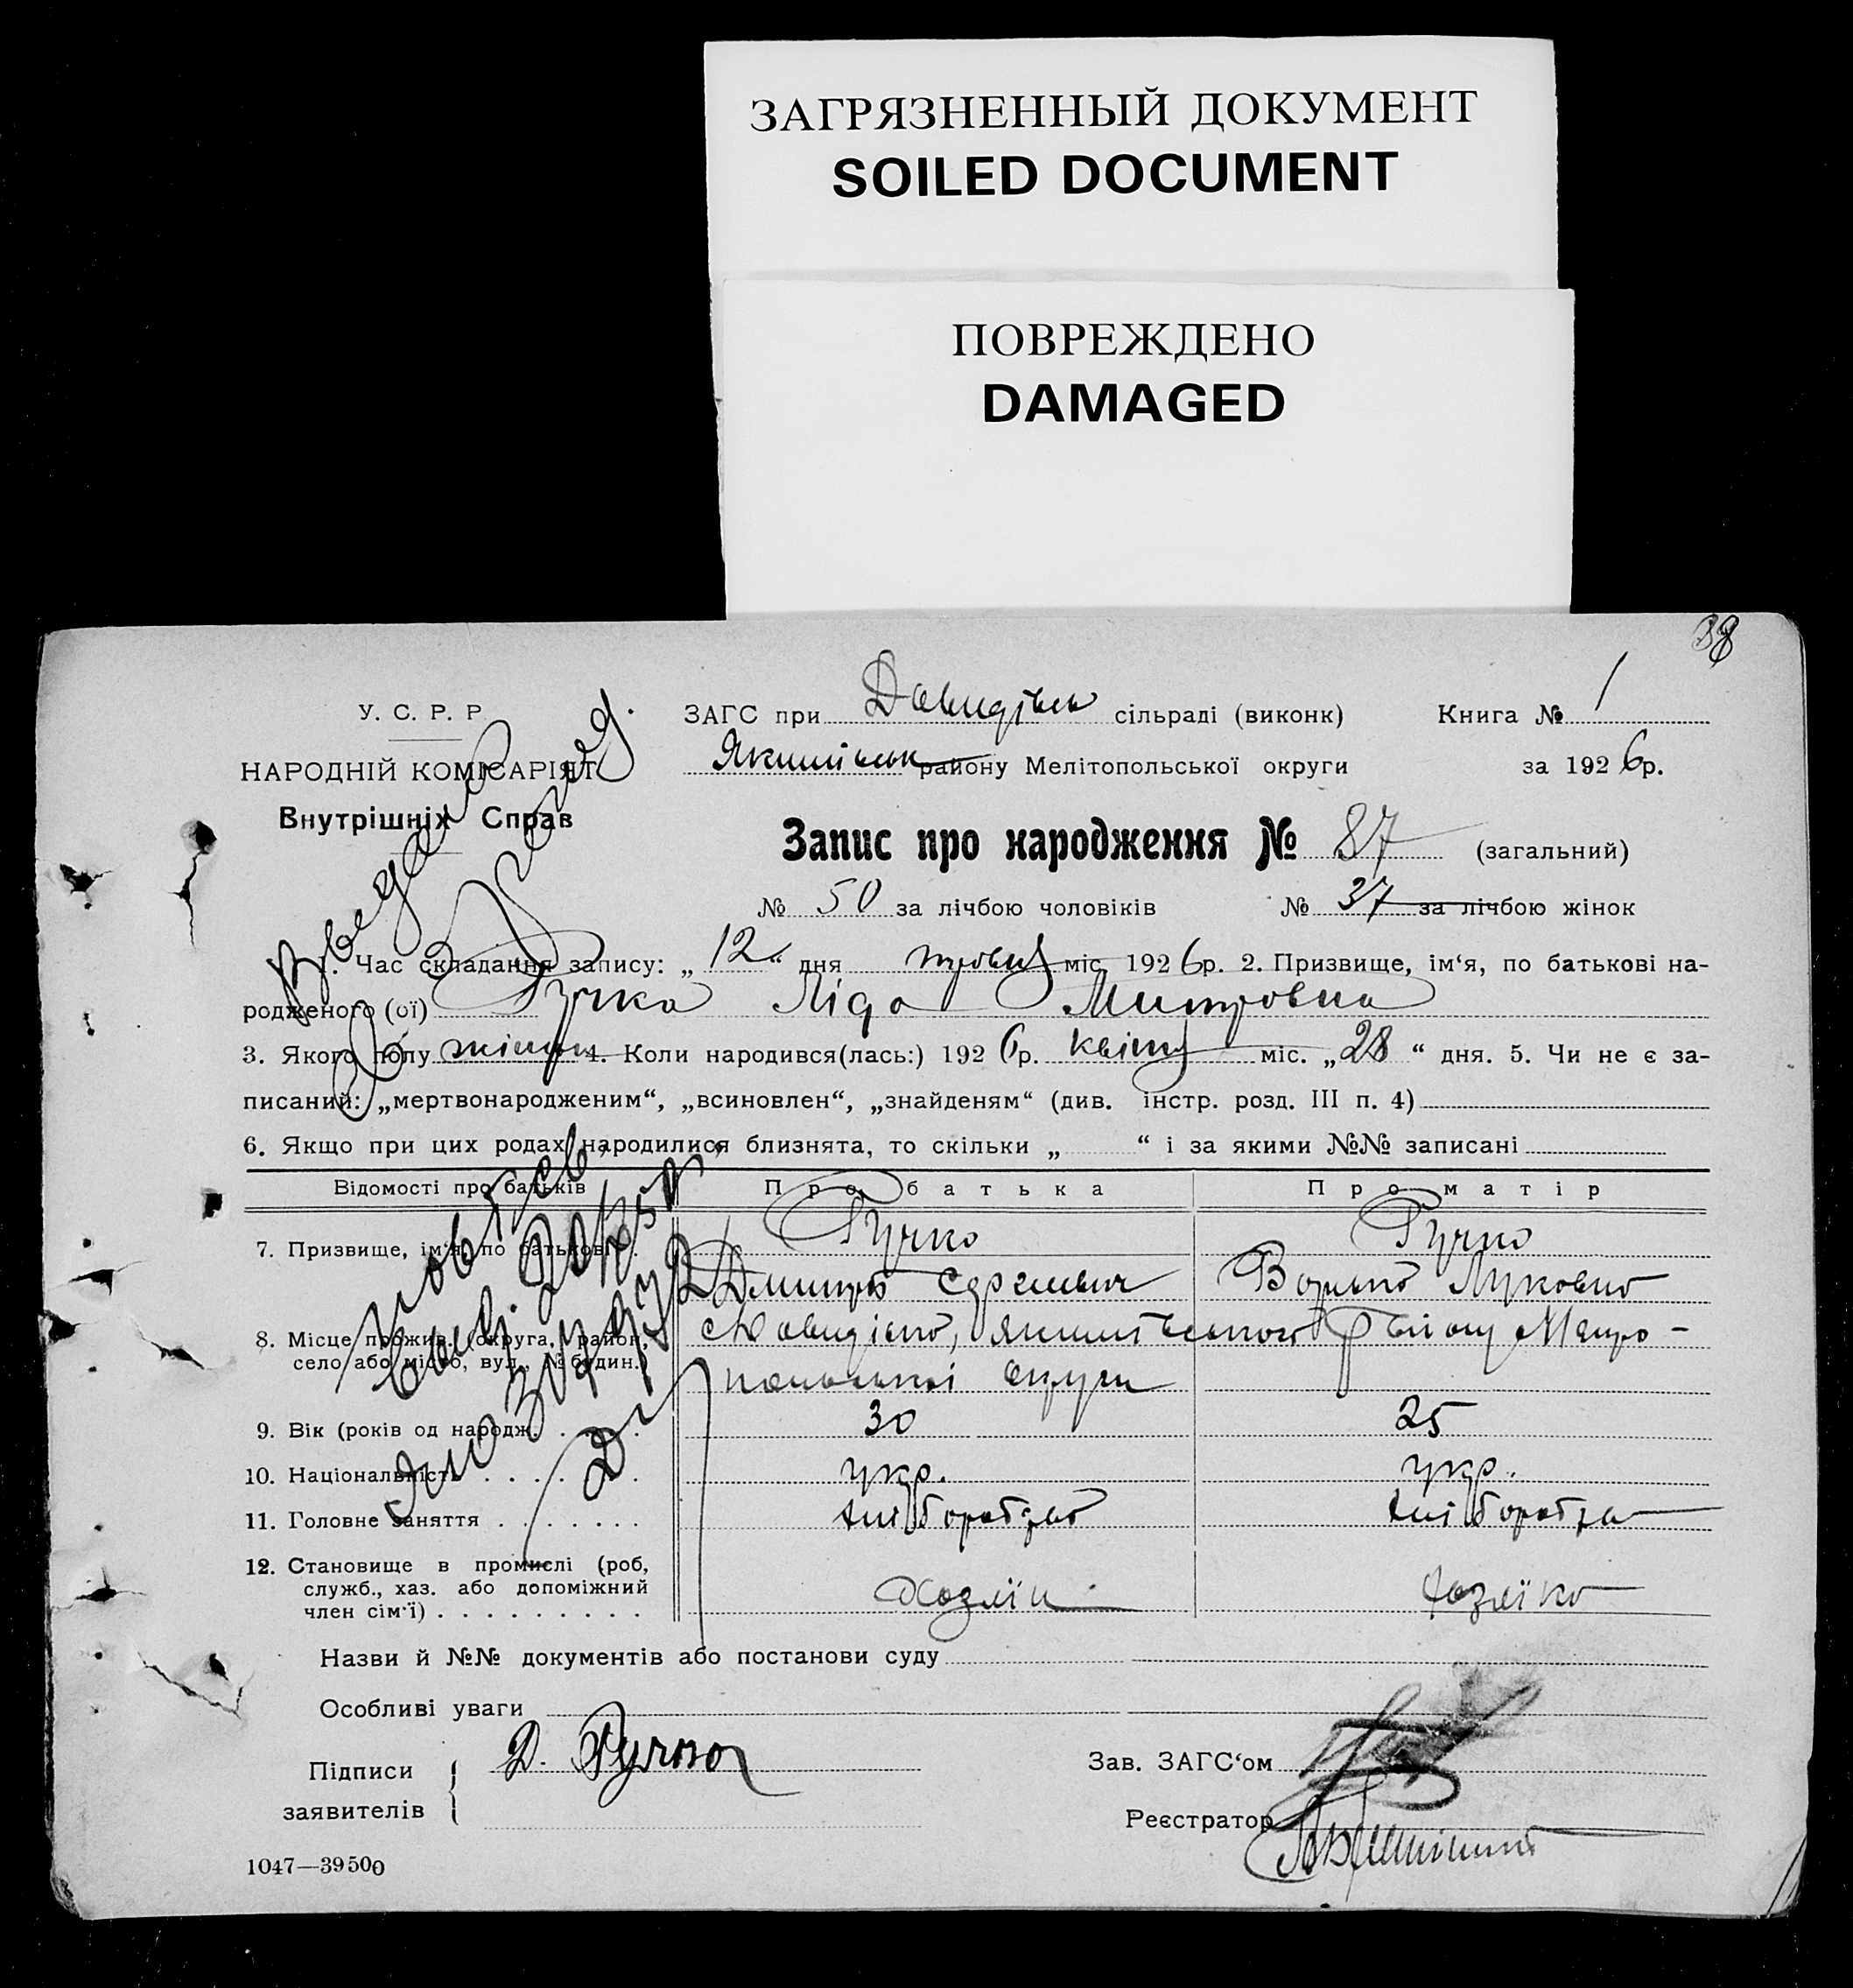 ЗАГРЯЗНЕННЫЙ ДОКУМЕНТ
SOILED DOCUMENT
ПОВРЕЖДЕНО
DAMAGED
38
У. С. Р. Р.
НАРОДНІЙ КОМІСАРІЯТ
Внутрішніх Справ
ЗАГС при Давидівськ сільраді (виконк) Книга № 1
Якимівськ району Мелітопольської округи за 1926р.
Запис про народження № 87 (загальний)
№ 50 за лічбою чоловіків № 37 за лічбою жінок
1. Час складання запису: „12“ дня травня міс. 1926р. 2. Призвище, ім'я, по батькові на-
родженого (ої) Ручка Ліда Митровна
3. Якого полу жіноч 4. Коли народився(лась:) 1926р. квітня міс. „28“ дня. 5. Чи не є за-
писаний: „мертвонародженим“, „всиновлен“, „знайденям“ (див. інстр. розд. III п. 4)
6. Якщо при цих родах народилися близнята, то скільки „ “ і за якими №№ записані
Відомості про батьків Про батька Про матір
7. Призвище, ім'я, по батькові . Ручко Ручко
Дмитро Сергиевич Луковна
8. Місце прожив. (округа, район, село або місто, вул., № будин.) Давидівка, Якимівського Району Меліто-
польської округи
9. Вік (років од народж. . . . . 30 25
10. Національність . . . . . . укр. укр.
11. Головне заняття . . . . . . . хліборобство хліборобства
12. Становище в промислі (роб, служб., хаз. або допоміжний член сім'ї) . . . . . . . . . Хозяїн хозяїка
Назви й №№ документів або постанови суду
Особливі уваги
Підписи
заявителів
Д. Ручко
Зав. ЗАГС‘ом
Реєстратор
1047—39500